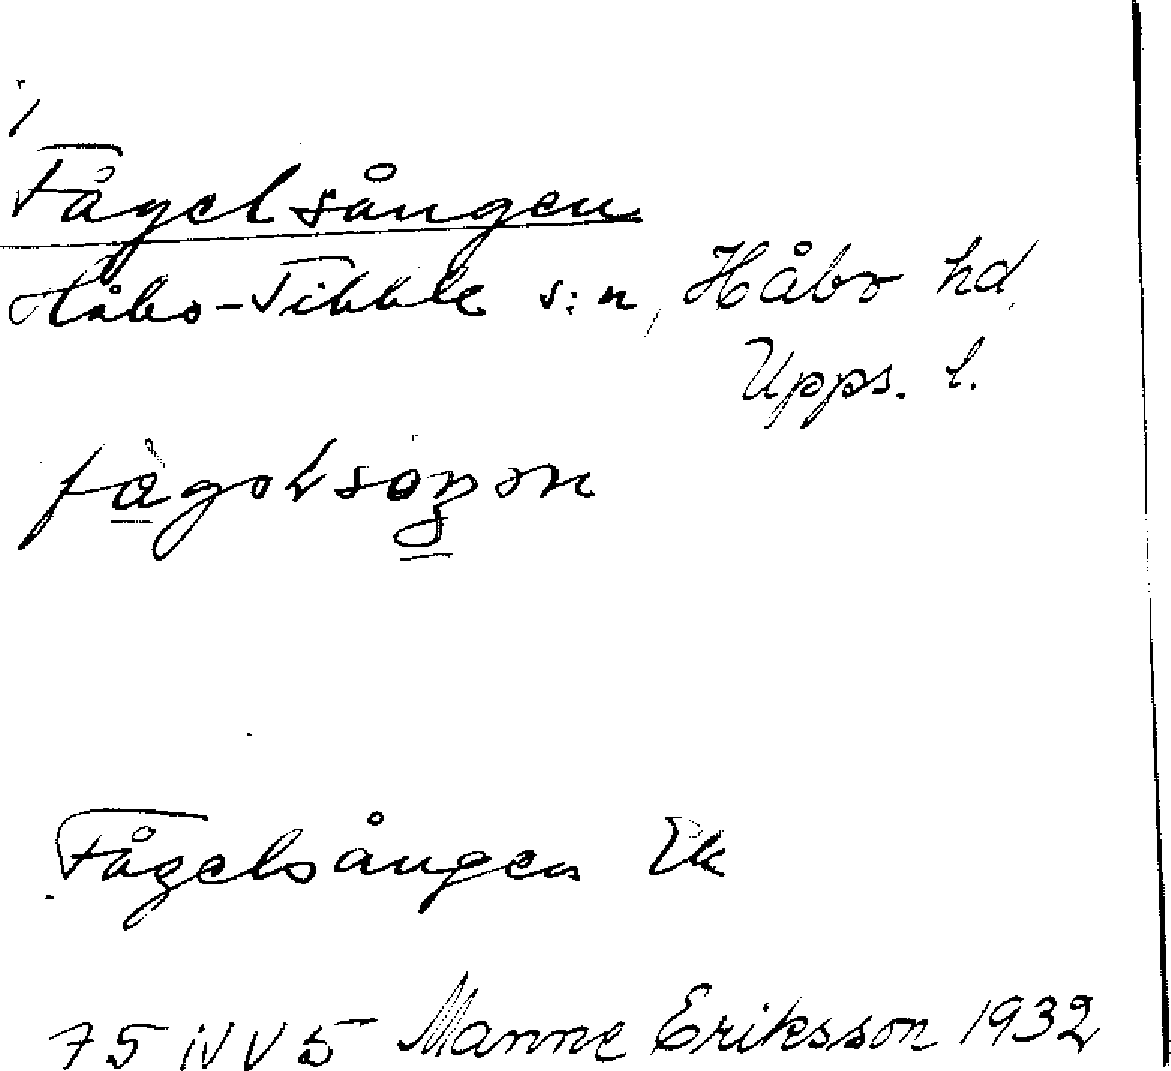 Fågelsången
Håbo-Tibble s:n, Håbo hd,
Upps. l.
Fågelsången Ek
75 NV 5 Manne Eriksson 1932